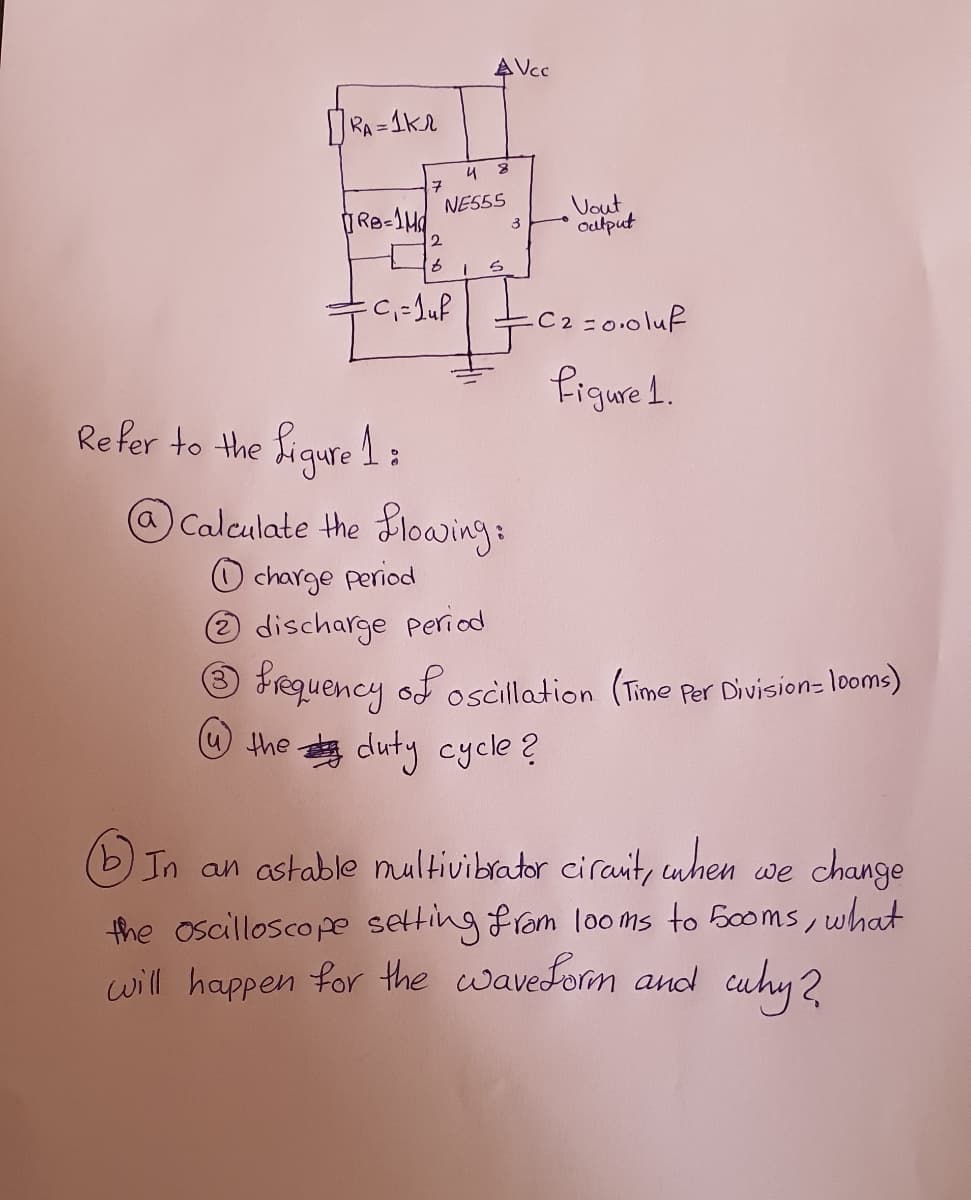 Vcc
RA = 1kΩ
4 8
7
NE555
RB=1MΩ
3
Vout
output
2
6 1 5
C₁=1uf
C2 = 0.01uf
figure 1.
Refer to the figure 1 :
ⓐ Calculate the flowing:
① charge period
② discharge period
③ frequency of oscillation (Time Per Division= 100ms)
④ the duty cycle ?
ⓑ In an astable multivibrator circuit, when we change
the oscilloscope setting from 100 ms to 500ms, what
will happen for the waveform and why?